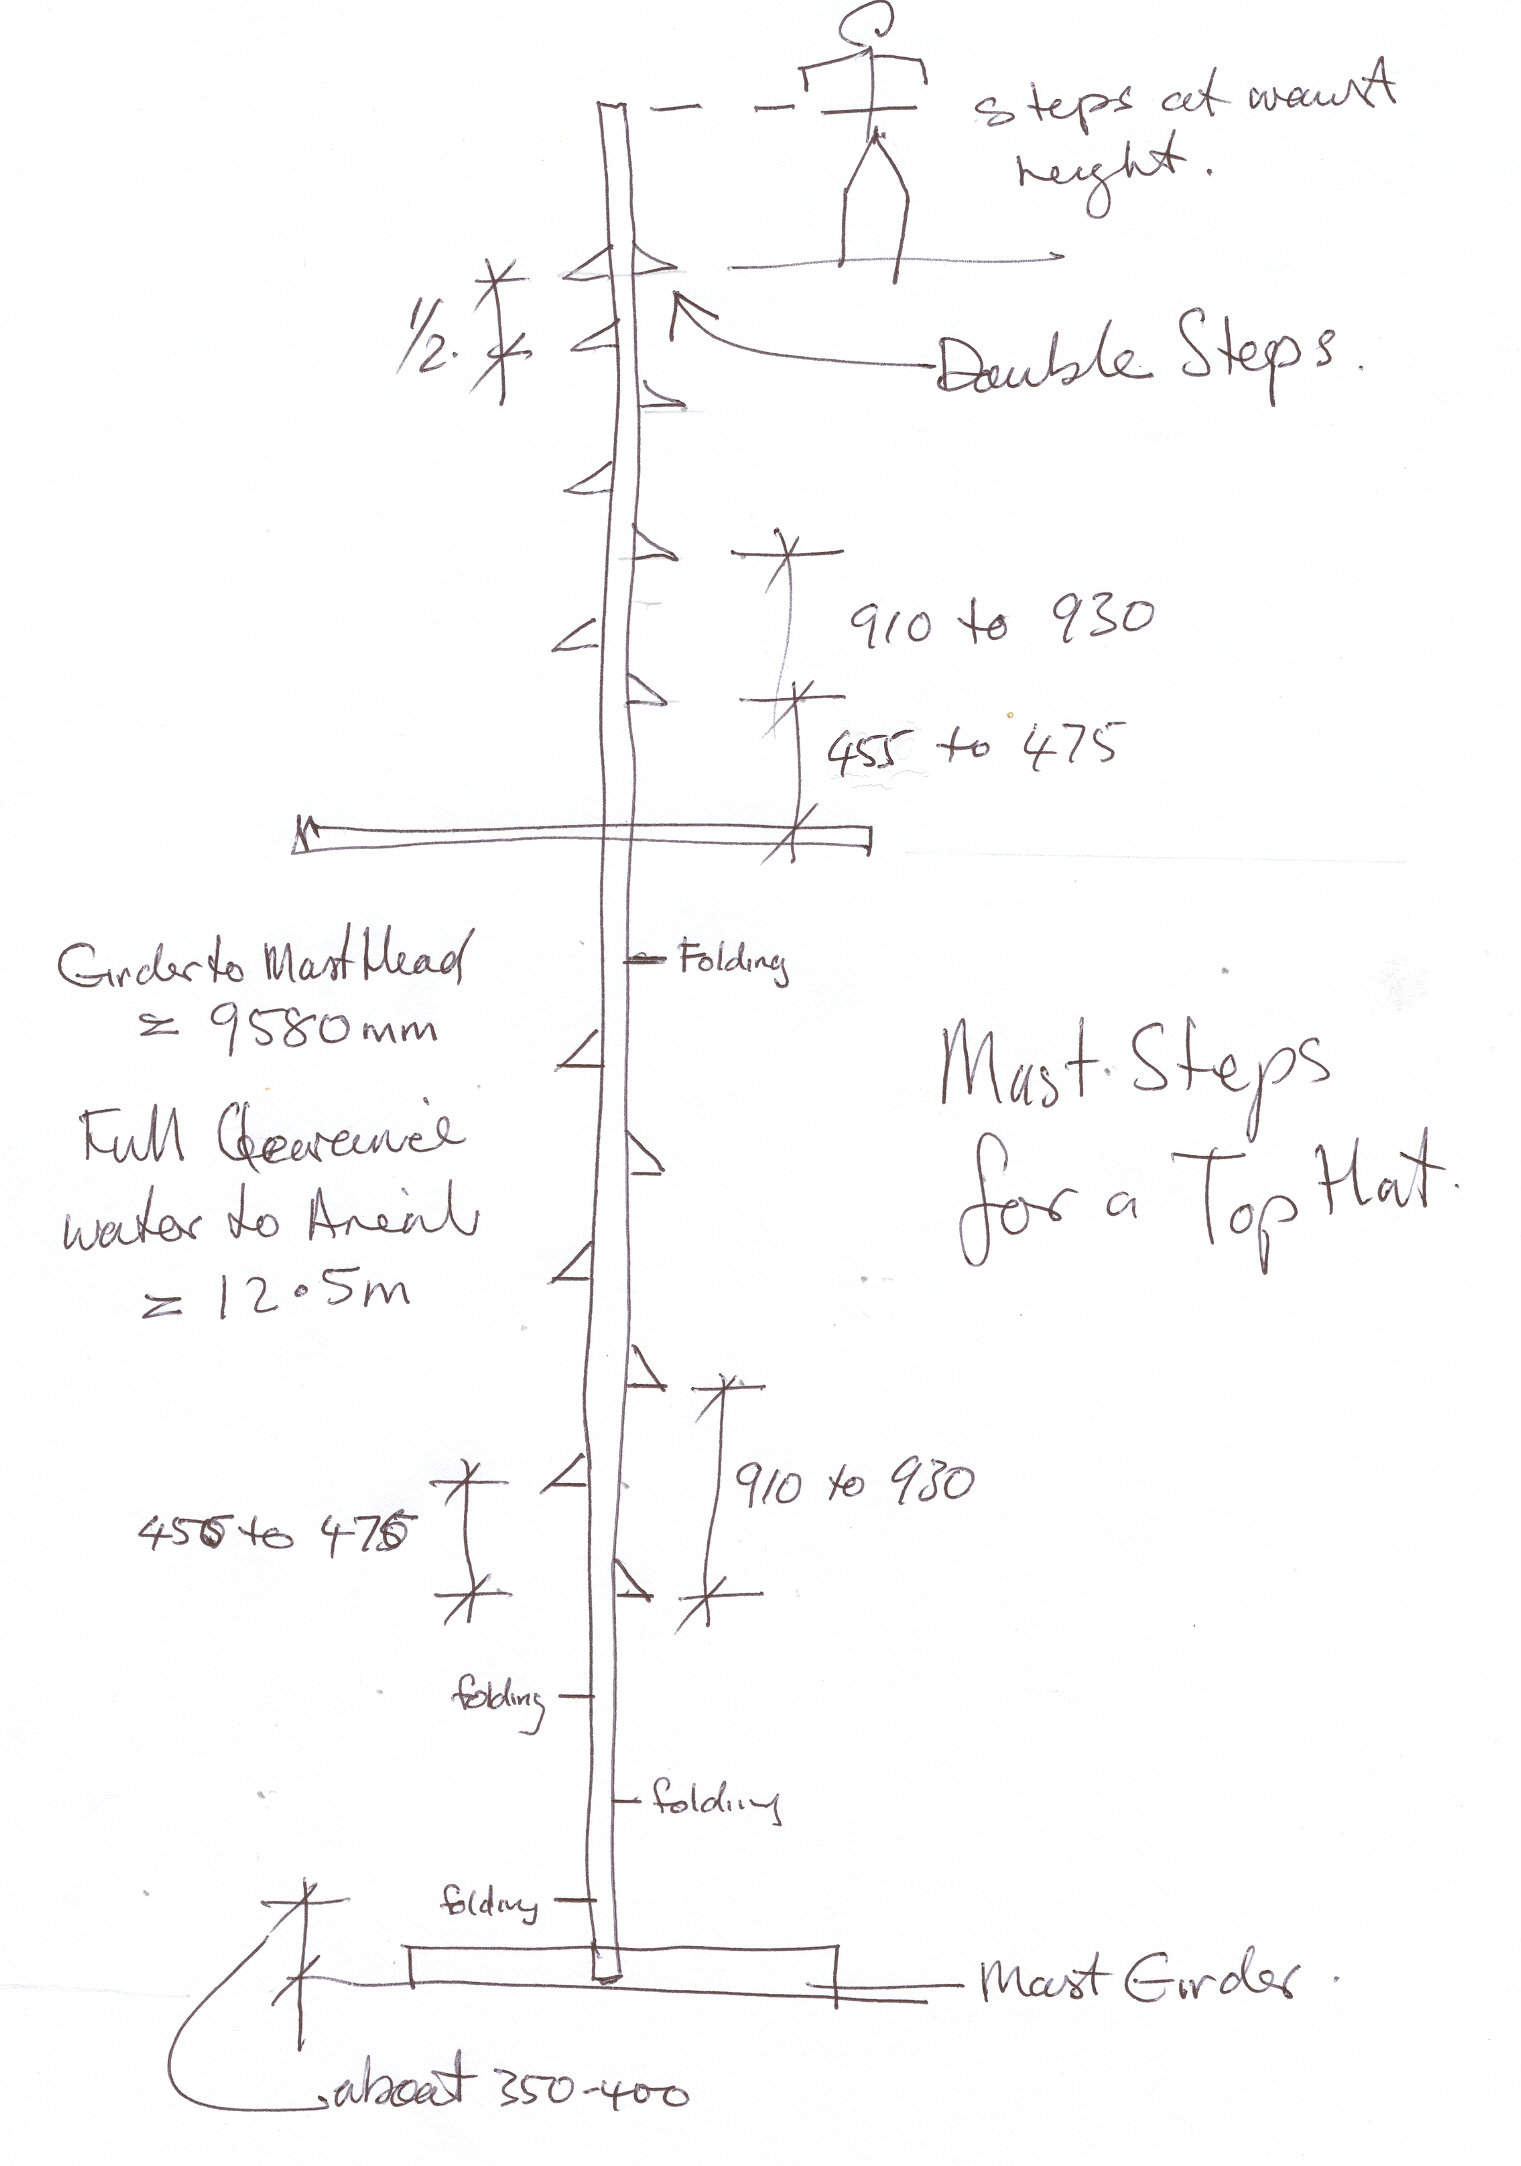 steps at waist
height.
1/2.
Double Steps.
910 to 930
455 to 475
Folding
Girder to Mast Head
= 9580mm
Full Clearance
water to Areial
= 12.5m
Mast Steps
for a Top Hat.
910 to 930
455 to 475
folding
folding
folding
Mast Girder.
about 350-400